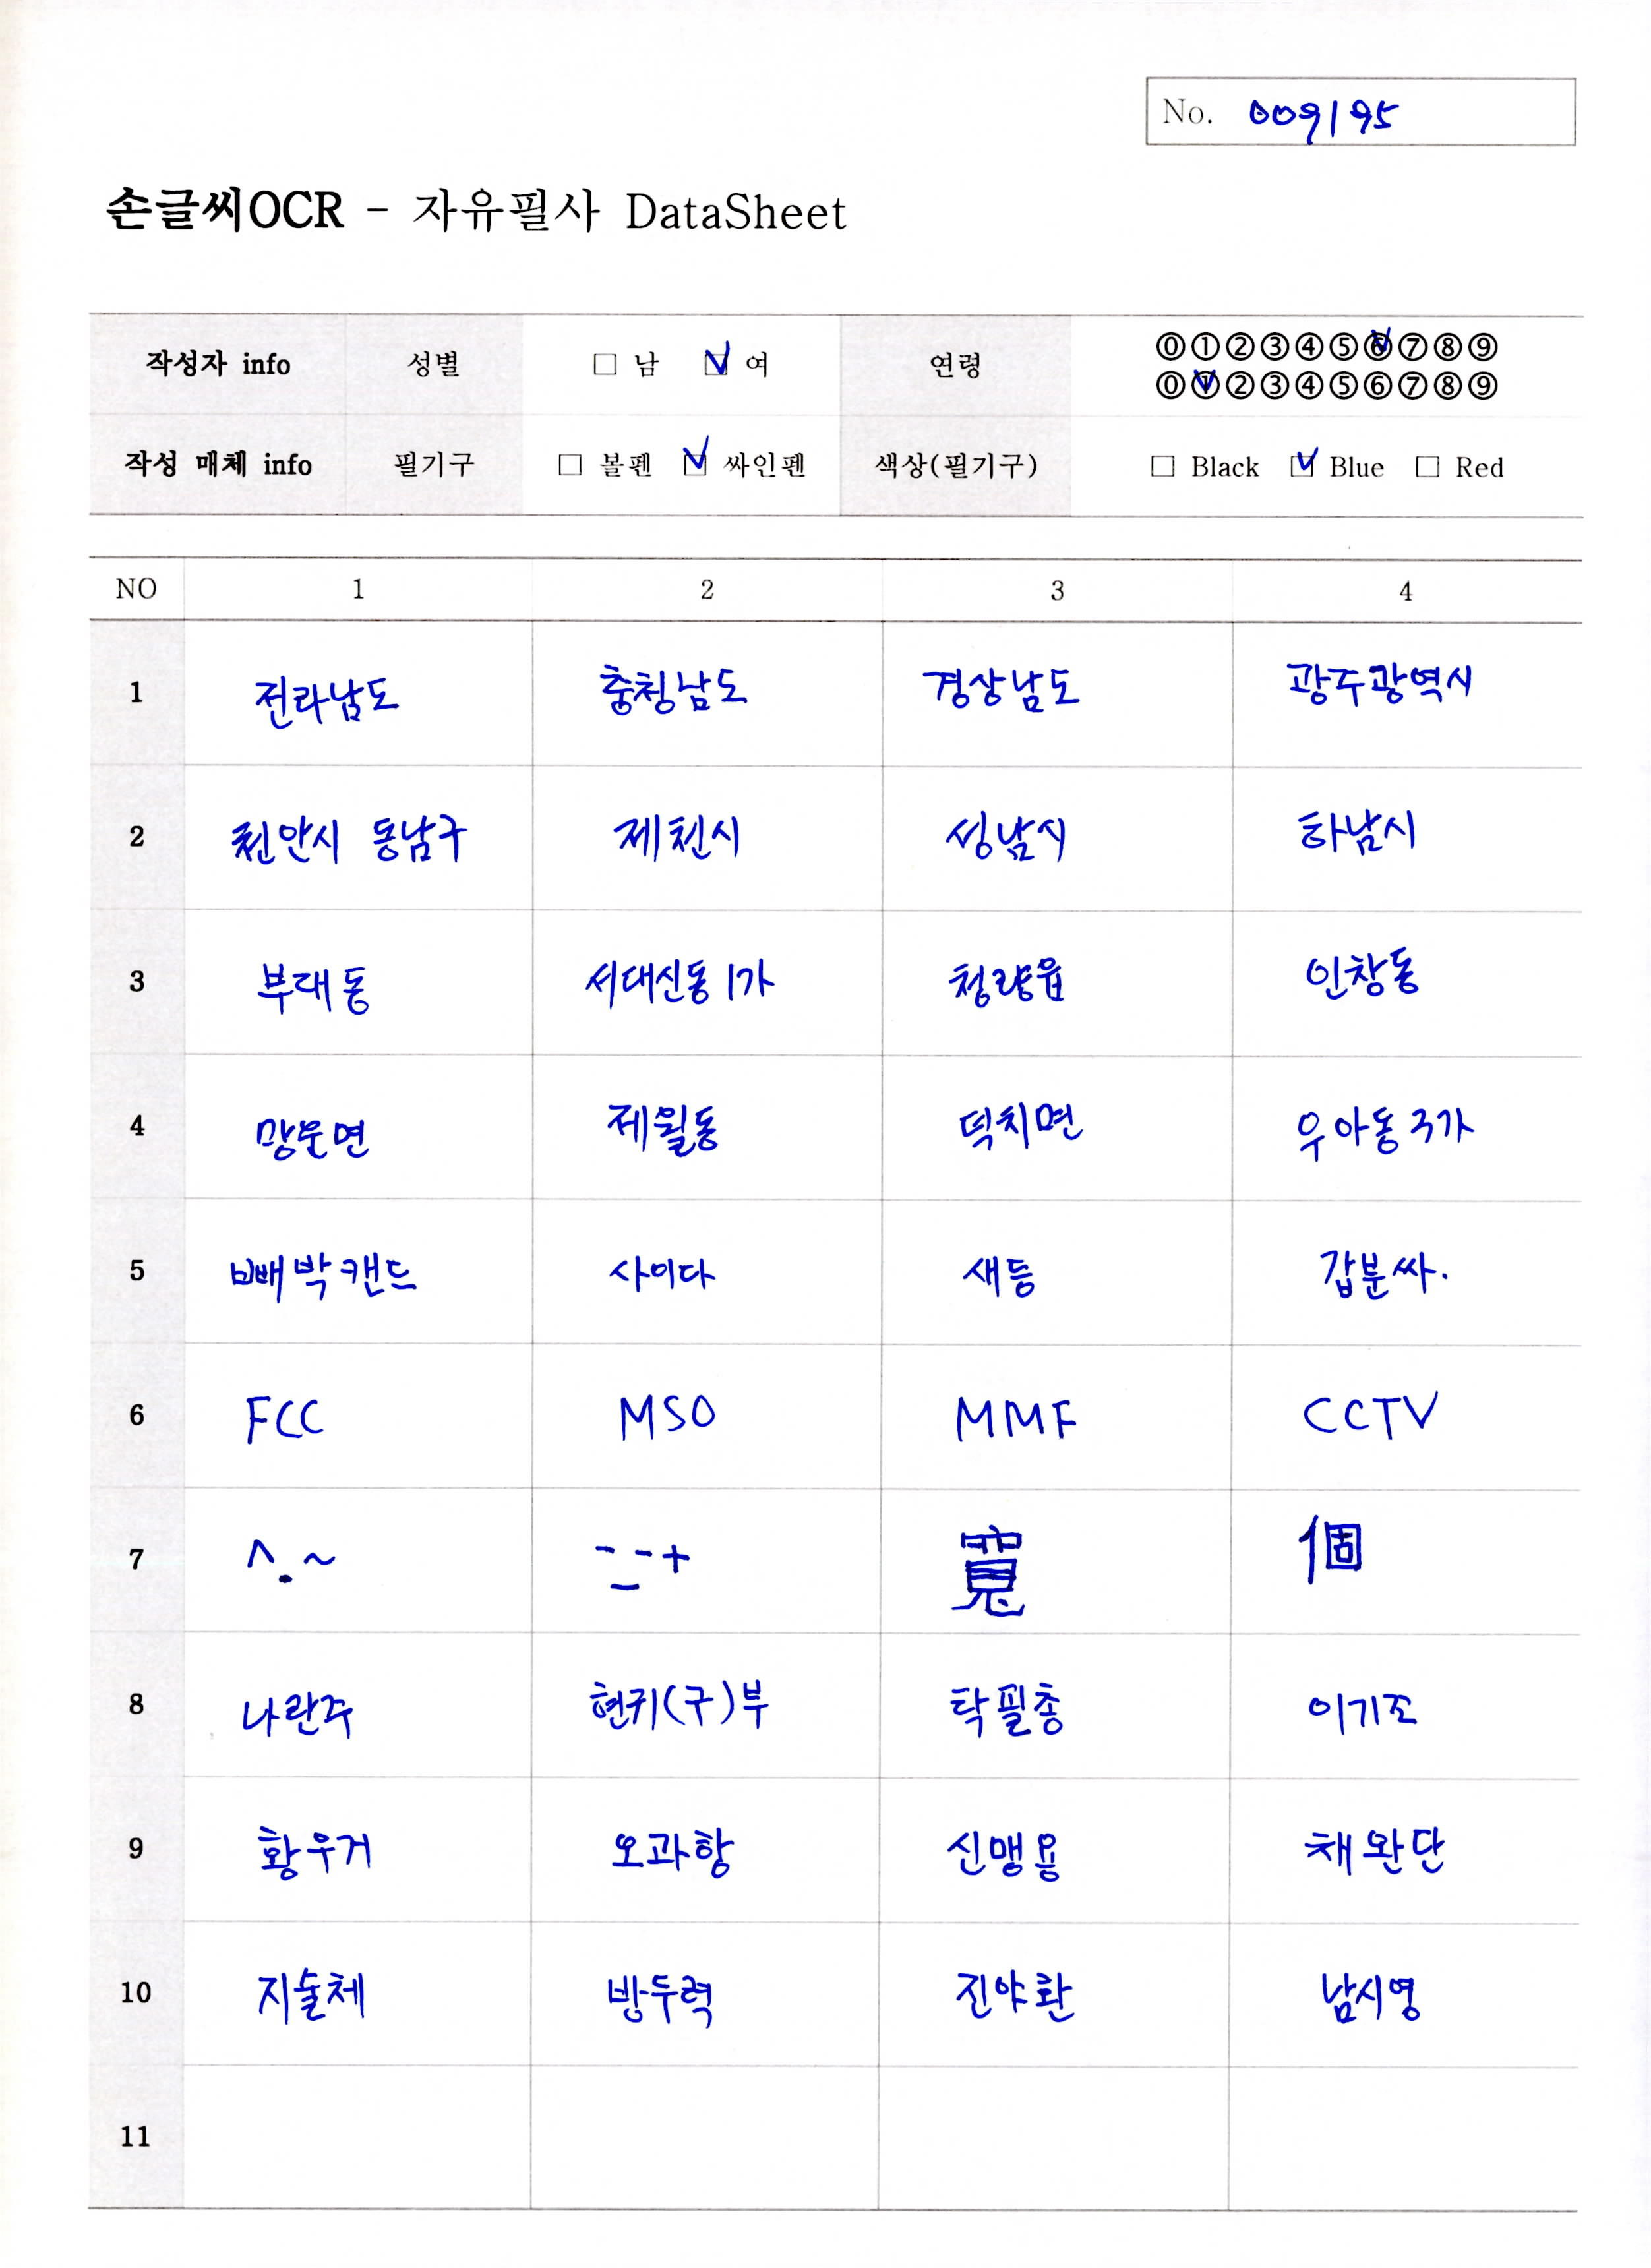 No. 009195
손글씨OCR - 자유필사 DataSheet
작성자 info 성별 □ 남 ☑ 여 연령 ⓪①②③④⑤⑥⑦⑧⑨
⓪①②③④⑤⑥⑦⑧⑨
작성 매체 info 필기구 □ 볼펜 ☑ 싸인펜 색상(필기구) □ Black ☑ Blue □ Red
NO 1 2 3 4
1 전라남도 충청남도 경상남도 광주광역시
2 천안시 동남구 제천시 성남시 하남시
3 부대동 서대신동1가 청량읍 인창동
4 망운면 제월동 덕치면 우아동3가
5 빼박캔드 사이다 새등 갑분싸.
6 FCC MSO MMF CCTV
7 ^.~ --+ 個
8 나란주 현귀(구)부 탁필총 이기조
9 황우거 오과항 신맹용 채완단
10 지술체 방두력 진야환 남시영
11